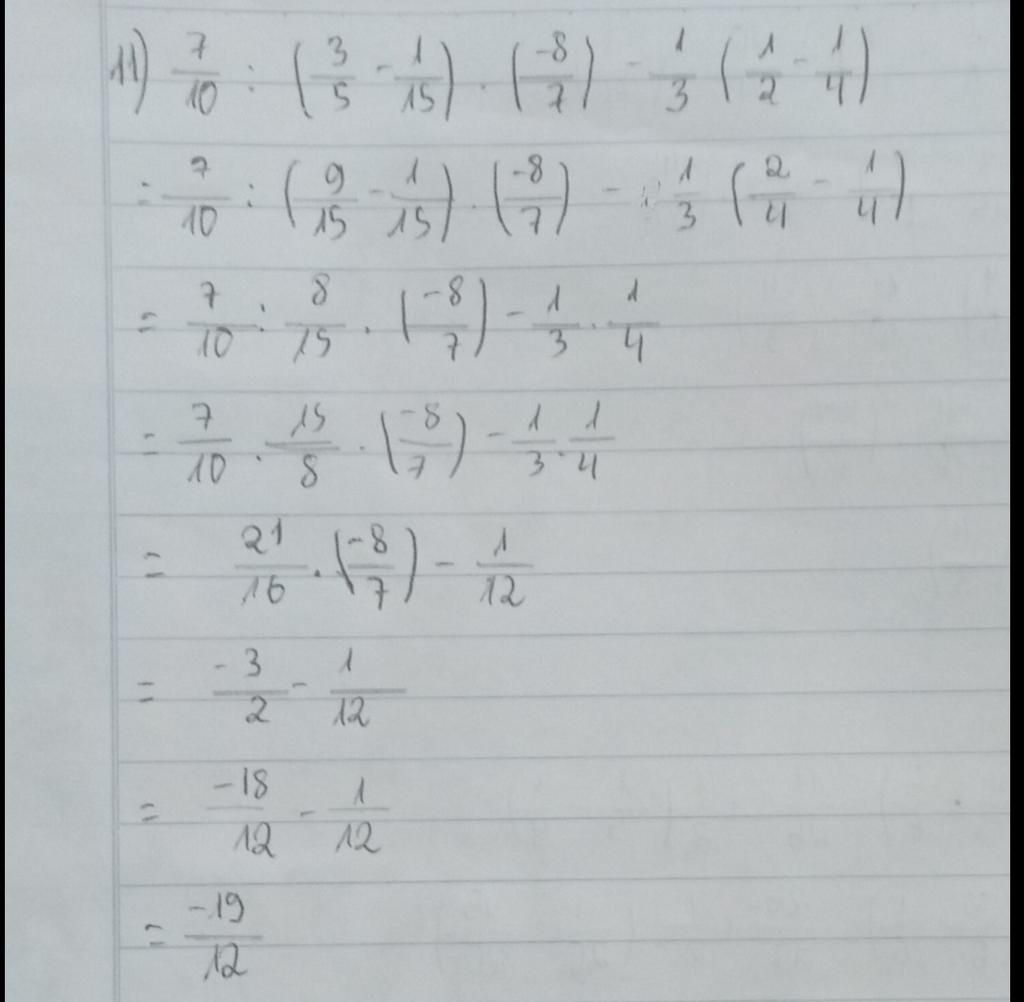 11) 7/10 : (3/5 - 1/15) . (-8/7) - 1/3 (1/2 - 1/4)
= 7/10 : (9/15 - 1/15) . (-8/7) - 1/3 (2/4 - 1/4)
= 7/10 : 8/15 . (-8/7) - 1/3 . 1/4
= 7/10 . 15/8 . (-8/7) - 1/3 . 1/4
= 21/16 . (-8/7) - 1/12
= -3/2 - 1/12
= -18/12 - 1/12
= -19/12